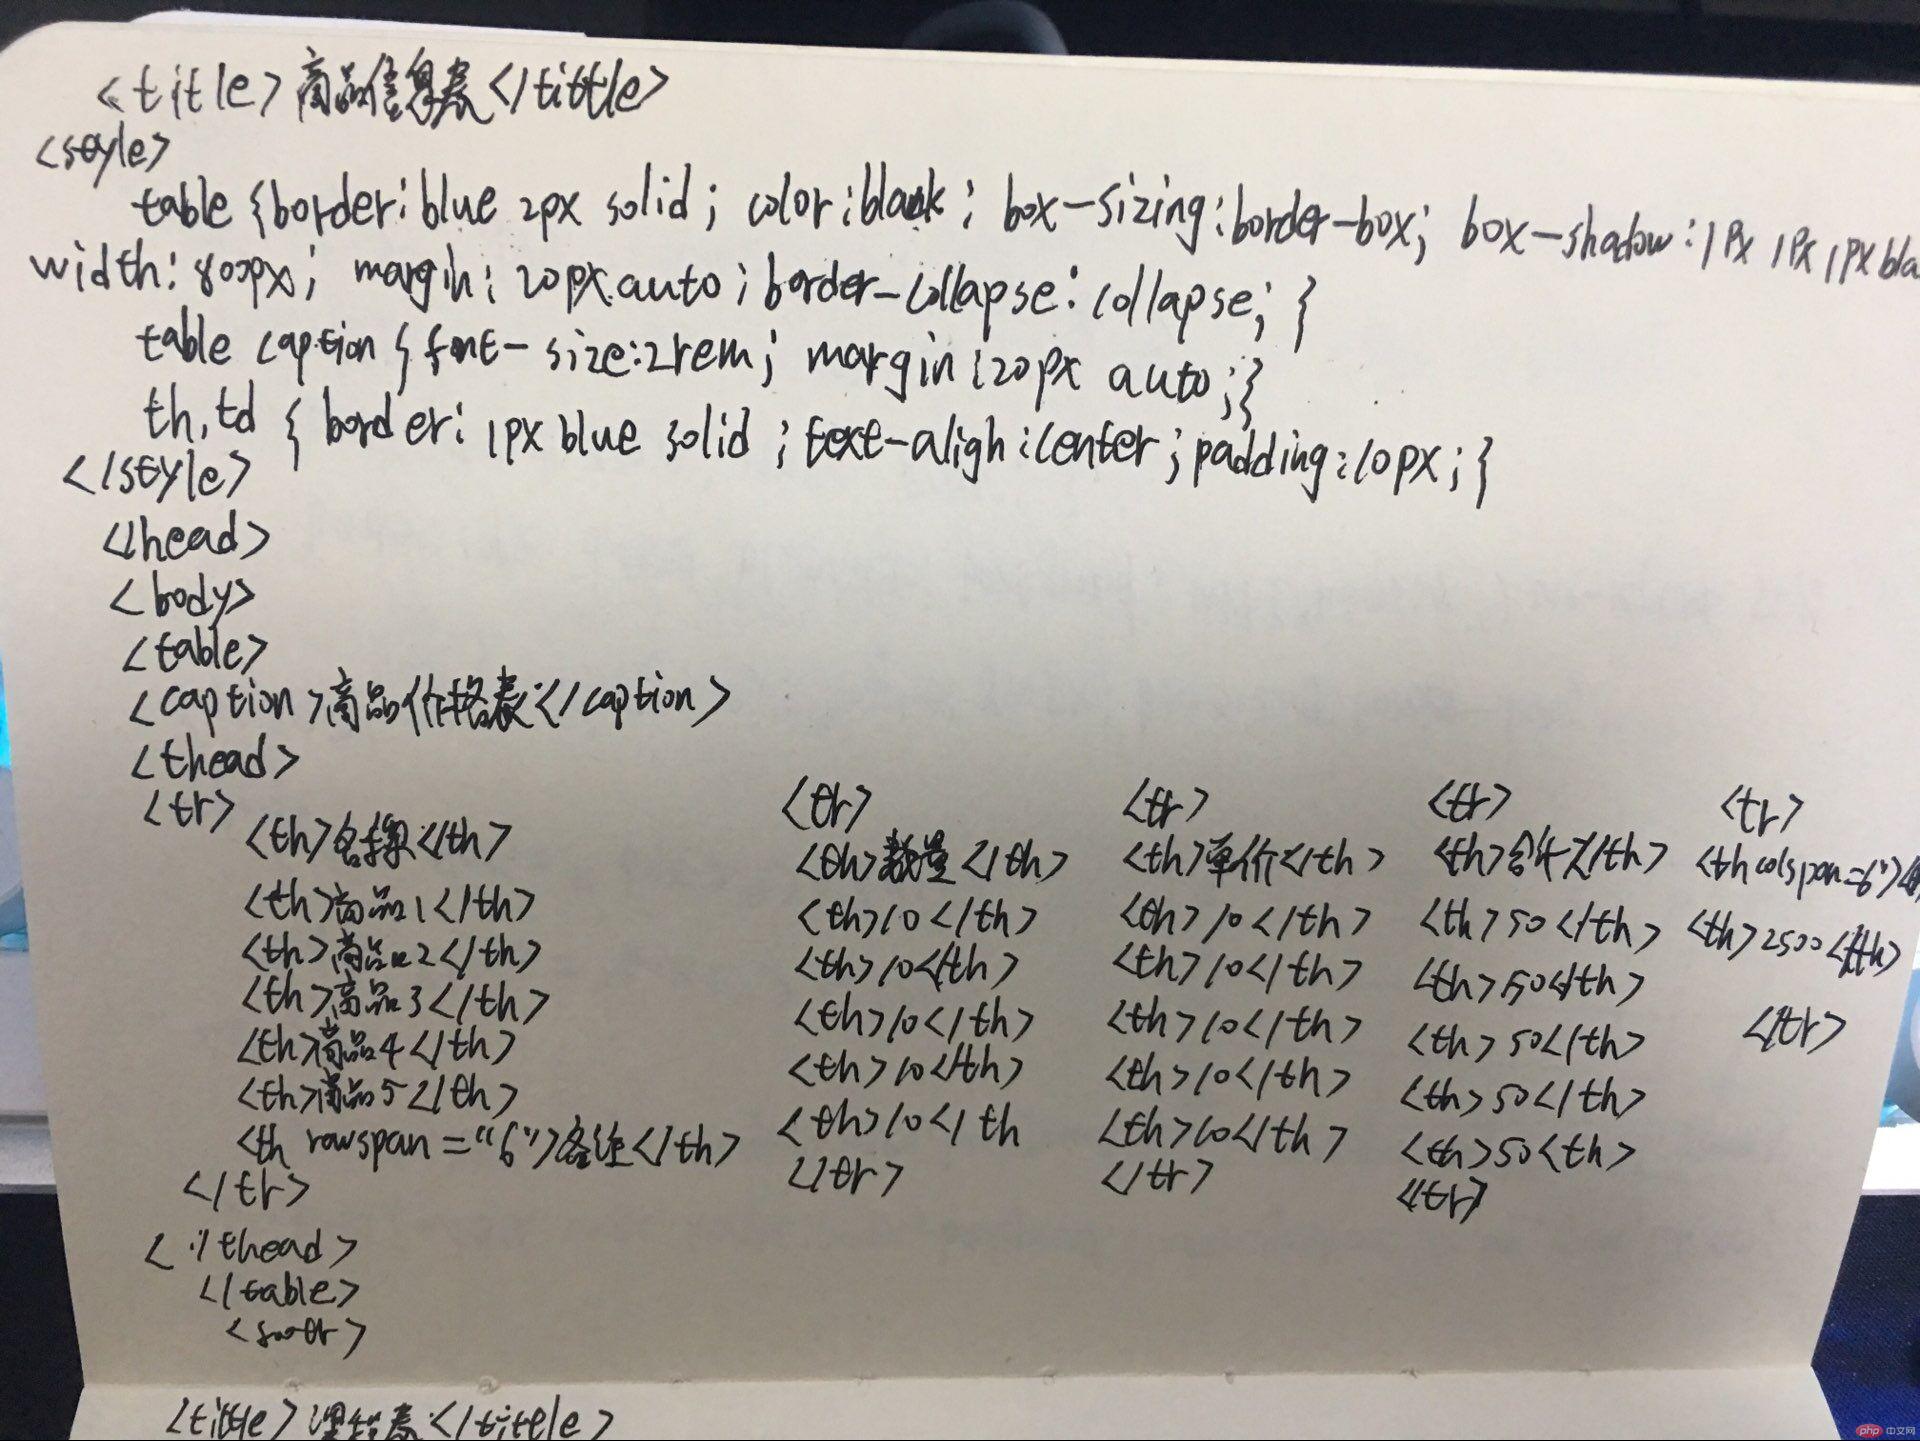 <title>商品信息表</tittle>
<style>
table {border:blue 2px solid; color:black; box-sizing:border-box; box-shadow:1px 1px 1px bla
width:800px; margin:20px auto; border-collapse:collapse; }
table caption {font-size:2rem; margin:20px auto;}
th,td { border: 1px blue solid ; text-aligh:center; padding:10px; }
</style>
</head>
<body>
<table>
<caption>商品价格表</caption>
<thead>
<tr>
<th>名称</th>
<th>商品1</th>
<th>商品2</th>
<th>商品3</th>
<th>商品4</th>
<th>商品5</th>
<th rowspan="6">备注</th>
</tr>
</thead>
</table>
<tr>
<th>数量</th>
<th>10</th>
<th>10</th>
<th>10</th>
<th>10</th>
<th>10</th
</tr>
<tr>
<th>单价</th>
<th>10</th>
<th>10</th>
<th>10</th>
<th>10</th>
<th>10</th>
</tr>
<tr>
<th>合计</th>
<th>50</th>
<th>50</th>
<th>50</th>
<th>50</th>
<th>50<th>
</tr>
<tr>
<th colspan=6">
<th>2500</th>
</tr>
<tittle>课程表</tittle>
php 中文网